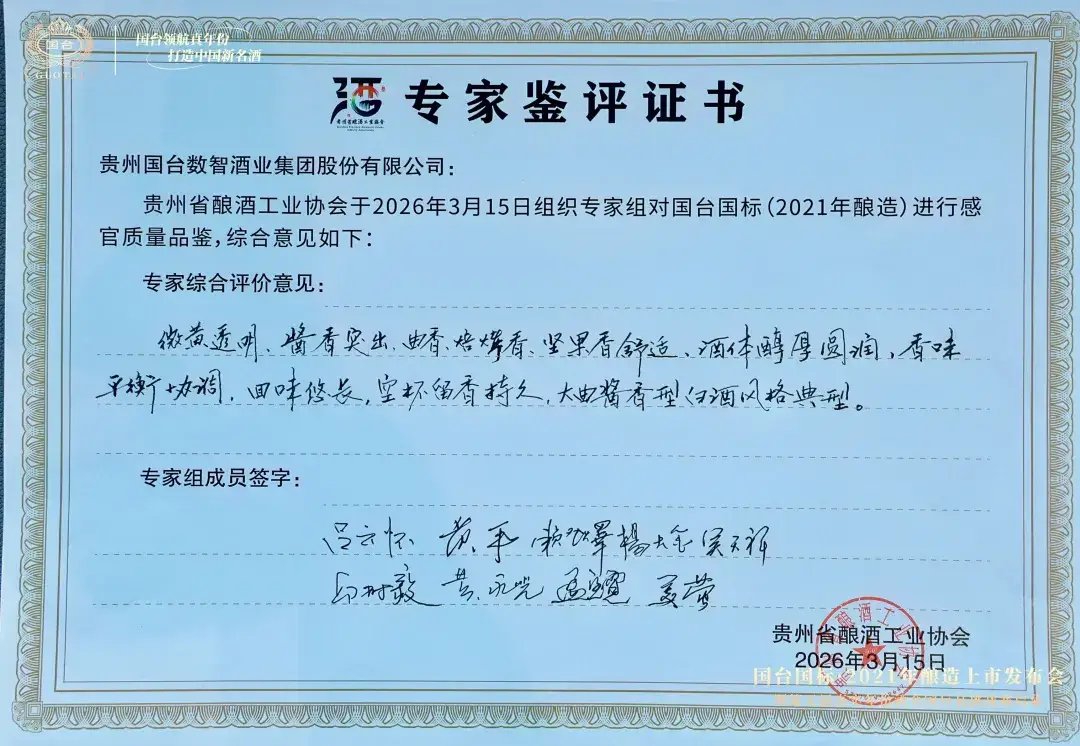 国台
GUOTAI
国台领航真年份
打造中国新名酒
贵州省酿酒工业协会
专家鉴评证书
贵州国台数智酒业集团股份有限公司：
贵州省酿酒工业协会于2026年3月15日组织专家组对国台国标（2021年酿造）进行感
官质量品鉴，综合意见如下：
专家综合评价意见：
微黄透明、酱香突出、曲香、焙烤香、坚果香舒适、酒体醇厚圆润、香味
平衡协调，回味悠长，空杯留香持久，大曲酱香型白酒风格典型。
专家组成员签字：
吕云怀 黄平 杨大金 吴天祥
邱树毅 黄永光 孟望霓
贵州省酿酒工业协会
2026年3月15日
国台国标·2021年酿造上市发布会